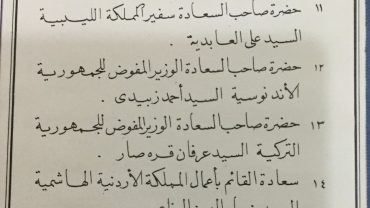 ١١ حضرة صاحب السعادة سفير المملكة الليبية
السيد على العابدية .
١٢ حضرة صاحب السعادة الوزير المفوض للجمهورية
الأندنوسية السيد أحمد زبيدى .
١٣ حضرة صاحب السعادة الوزير المفوض للجمهورية
التركية السيد عرفان قره صار .
١٤ سعادة القائم بأعمال المملكة الأردنية الهاشمية